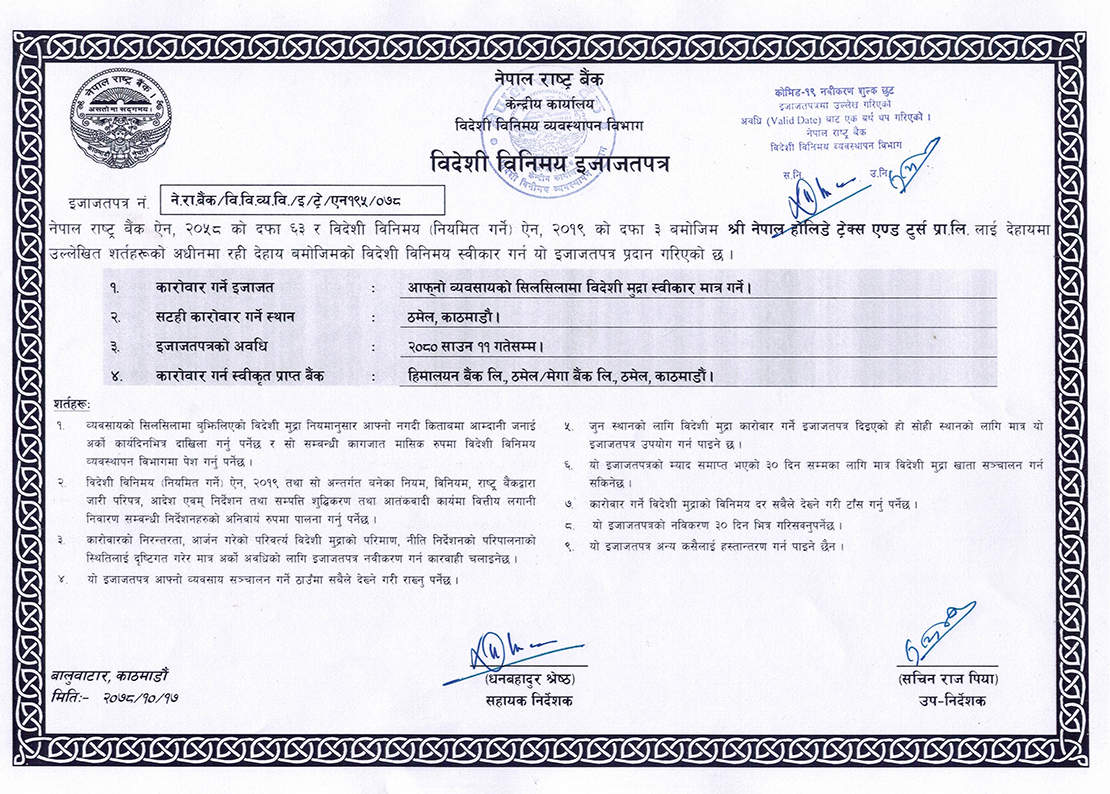 नेपाल राष्ट्र बैंक
केन्द्रीय कार्यालय
विदेशी विनिमय व्यवस्थापन विभाग
विदेशी विनिमय इजाजतपत्र
नेपाल राष्ट्र बैंक
असतोमा सद्गमय।
काठमाण्डौ नेपाल
कोभिड-१९ नवीकरण शुल्क छुट
इजाजतपत्रमा उल्लेख गरिएको
अवधि (Valid Date) बाट एक बर्ष थप गरिएको ।
नेपाल राष्ट्र बैंक
विदेशी विनिमय व्यवस्थापन विभाग
स.नि. उ.नि.
इजाजतपत्र नं. ने.रा.बैंक/वि.वि.व्य.वि./इ/ट्रे/एन१९५/०७८
नेपाल राष्ट्र बैंक ऐन, २०५८ को दफा ६३ र विदेशी विनिमय (नियमित गर्ने) ऐन, २०१९ को दफा ३ बमोजिम श्री नेपाल होलिडे ट्रेक्स एण्ड टुर्स प्रा.लि. लाई देहायमा
उल्लेखित शर्तहरूको अधीनमा रही देहाय बमोजिमको विदेशी विनिमय स्वीकार गर्न यो इजाजतपत्र प्रदान गरिएको छ ।
१. कारोवार गर्ने इजाजत : आफ्नो व्यवसायको सिलसिलामा विदेशी मुद्रा स्वीकार मात्र गर्ने।
२. सटही कारोवार गर्ने स्थान : ठमेल, काठमाडौं।
३. इजाजतपत्रको अवधि : २०८० साउन ११ गतेसम्म।
४. कारोवार गर्न स्वीकृत प्राप्त बैंक : हिमालयन बैंक लि., ठमेल/मेगा बैंक लि., ठमेल, काठमाडौं।
शर्तहरू:
१. व्यवसायको सिलसिलामा बुझिलिएको विदेशी मुद्रा नियमानुसार आफ्नो नगदी किताबमा आम्दानी जनाई
अर्को कार्यदिनभित्र दाखिला गर्नु पर्नेछ र सो सम्बन्धी कागजात मासिक रुपमा विदेशी विनिमय
व्यवस्थापन विभागमा पेश गर्नु पर्नेछ ।
२. विदेशी विनिमय (नियमित गर्ने) ऐन, २०१९ तथा सो अन्तर्गत बनेका नियम, विनियम, राष्ट्र बैंकद्वारा
जारी परिपत्र, आदेश एवम् निर्देशन तथा सम्पत्ति शुद्धिकरण तथा आतंकवादी कार्यमा वित्तीय लगानी
निवारण सम्बन्धी निर्देशनहरुको अनिवार्य रुपमा पालना गर्नु पर्नेछ ।
३. कारोवारको निरन्तरता, आर्जन गरेको परिवर्त्य विदेशी मुद्राको परिमाण, नीति निर्देशनको परिपालनाको
स्थितिलाई दृष्टिगत गरेर मात्र अर्को अवधिको लागि इजाजतपत्र नवीकरण गर्न कारवाही चलाइनेछ ।
४. यो इजाजतपत्र आफ्नो व्यवसाय सञ्चालन गर्ने ठाउँमा सबैले देख्ने गरी राख्नु पर्नेछ ।
५. जुन स्थानको लागि विदेशी मुद्रा कारोवार गर्ने इजाजतपत्र दिइएको हो सोही स्थानको लागि मात्र यो
इजाजतपत्र उपयोग गर्न पाइने छ ।
६. यो इजाजतपत्रको म्याद समाप्त भएको ३० दिन सम्मका लागि मात्र विदेशी मुद्रा खाता सञ्चालन गर्न
सकिनेछ ।
७. कारोवार गर्ने विदेशी मुद्राको विनिमय दर सबैले देख्ने गरी टाँस गर्नु पर्नेछ ।
८. यो इजाजतपत्रको नविकरण ३० दिन भित्र गरिसक्नुपर्नेछ ।
९. यो इजाजतपत्र अन्य कसैलाई हस्तान्तरण गर्न पाइने छैन ।
बालुवाटार, काठमाडौं
मितिः- २०७८/१०/१७
(धनबहादुर श्रेष्ठ)
सहायक निर्देशक
(सचिन राज पिया)
उप-निर्देशक